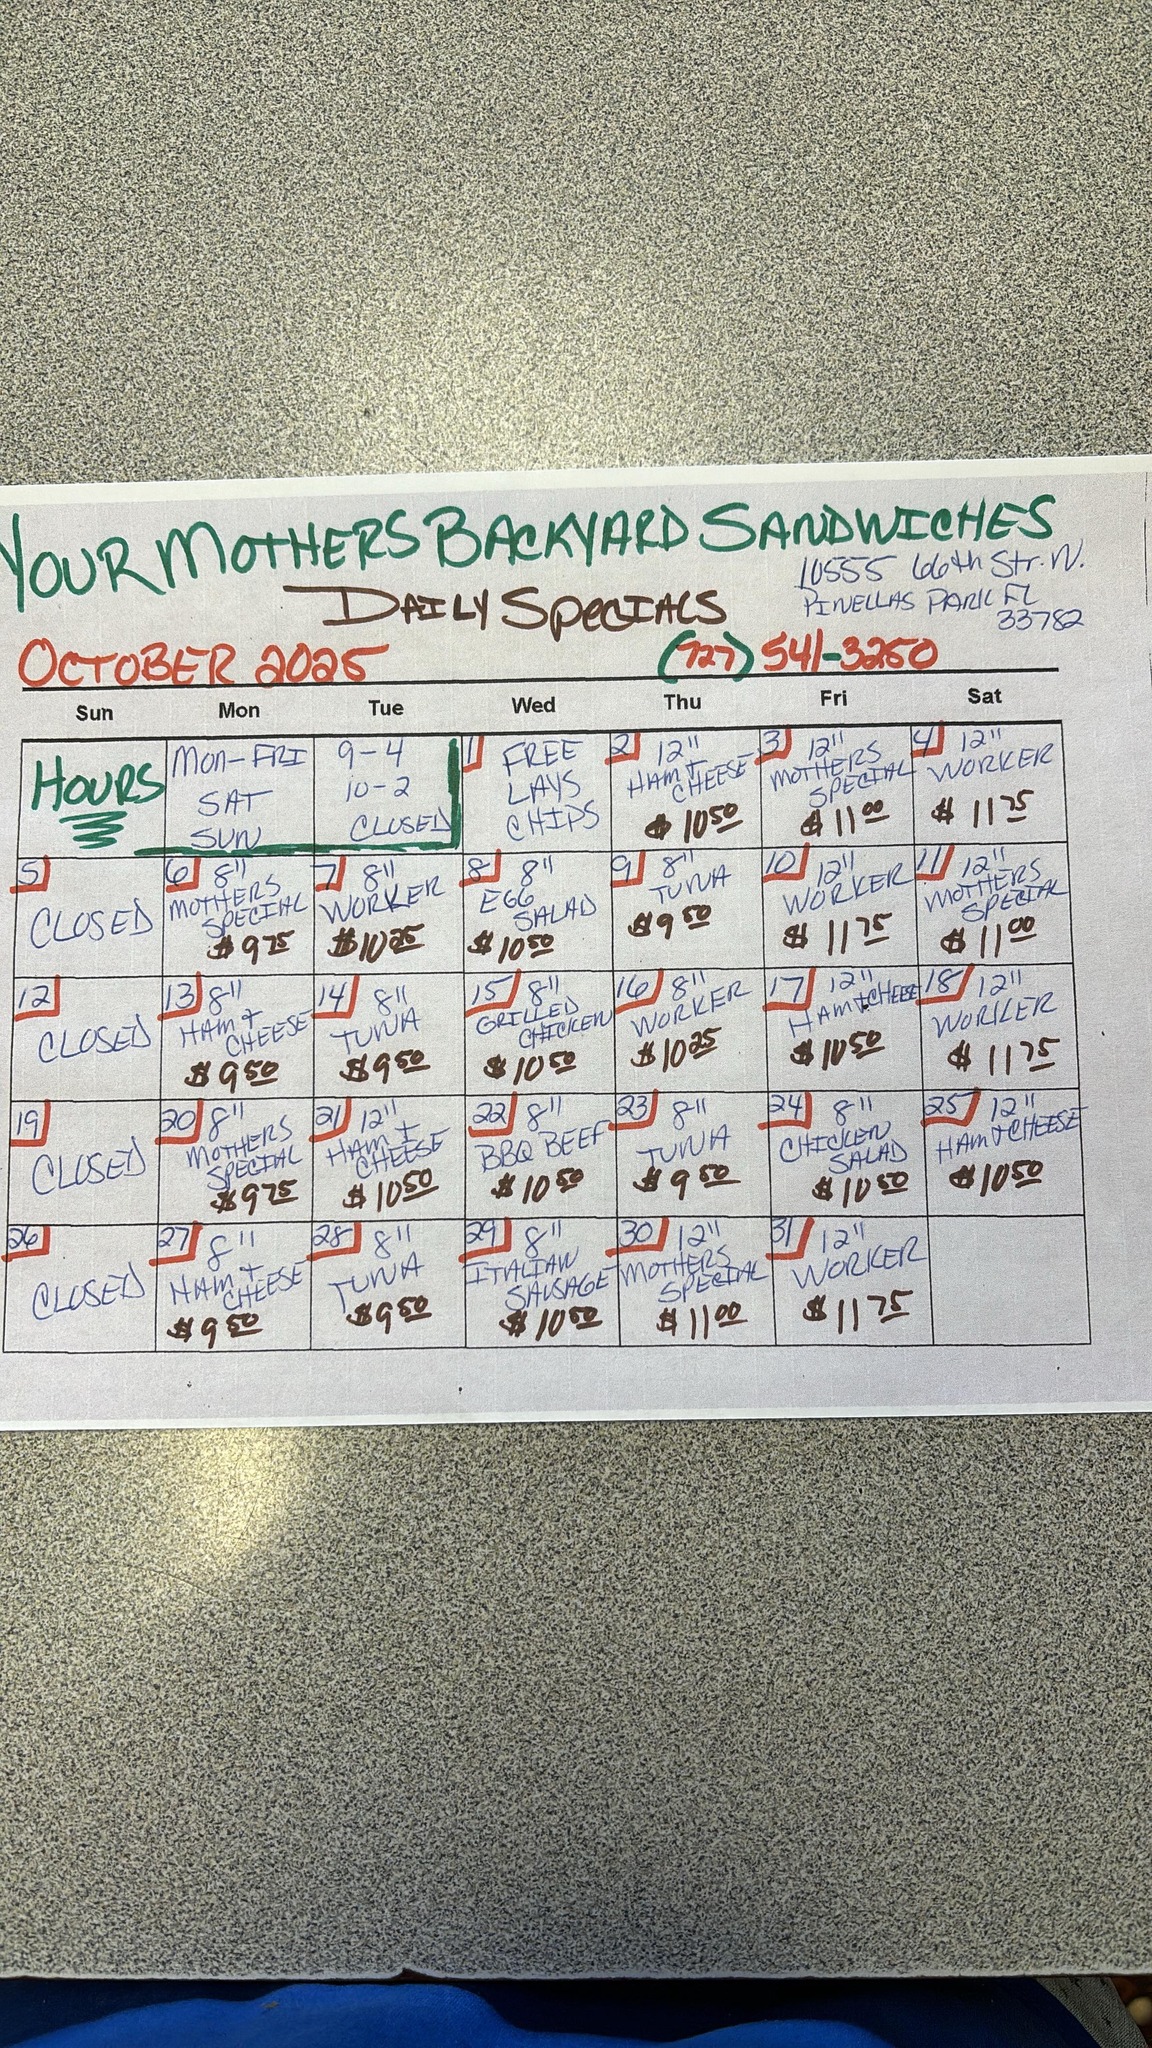 YOUR MOTHERS BACKYARD SANDWICHES
10555 66th Str. N.
PINELLAS PARK FL
33782
DAILY SPECIALS
OCTOBER 2025
(727) 541-3250
Sun Mon Tue Wed Thu Fri Sat
HOURS
MON-FRI 9-4
SAT 10-2
SUN CLOSED
1
FREE
LAYS
CHIPS
2 12"
HAM +
CHEESE
$10 50
3 12"
MOTHERS
SPECIAL
$11 00
4 12"
WORKER
$11 75
5
CLOSED
6 8"
MOTHERS
SPECIAL
$9 75
7 8"
WORKER
$10 25
8 8"
EGG
SALAD
$10 50
9 8"
TUNA
$9 50
10 12"
WORKER
$11 75
11 12"
MOTHERS
SPECIAL
$11 00
12
CLOSED
13 8"
HAM +
CHEESE
$9 50
14 8"
TUNA
$9 50
15 8"
GRILLED
CHICKEN
$10 50
16 8"
WORKER
$10 25
17 12"
HAM + CHEESE
$10 50
18 12"
WORKER
$11 75
19
CLOSED
20 8"
MOTHERS
SPECIAL
$9 75
21 12"
HAM +
CHEESE
$10 50
22 8"
BBQ BEEF
$10 50
23 8"
TUNA
$9 50
24 8"
CHICKEN
SALAD
$10 50
25 12"
HAM + CHEESE
$10 50
26
CLOSED
27 8"
HAM +
CHEESE
$9 50
28 8"
TUNA
$9 50
29 8"
ITALIAN
SAUSAGE
$10 50
30 12"
MOTHERS
SPECIAL
$11 00
31 12"
WORKER
$11 75